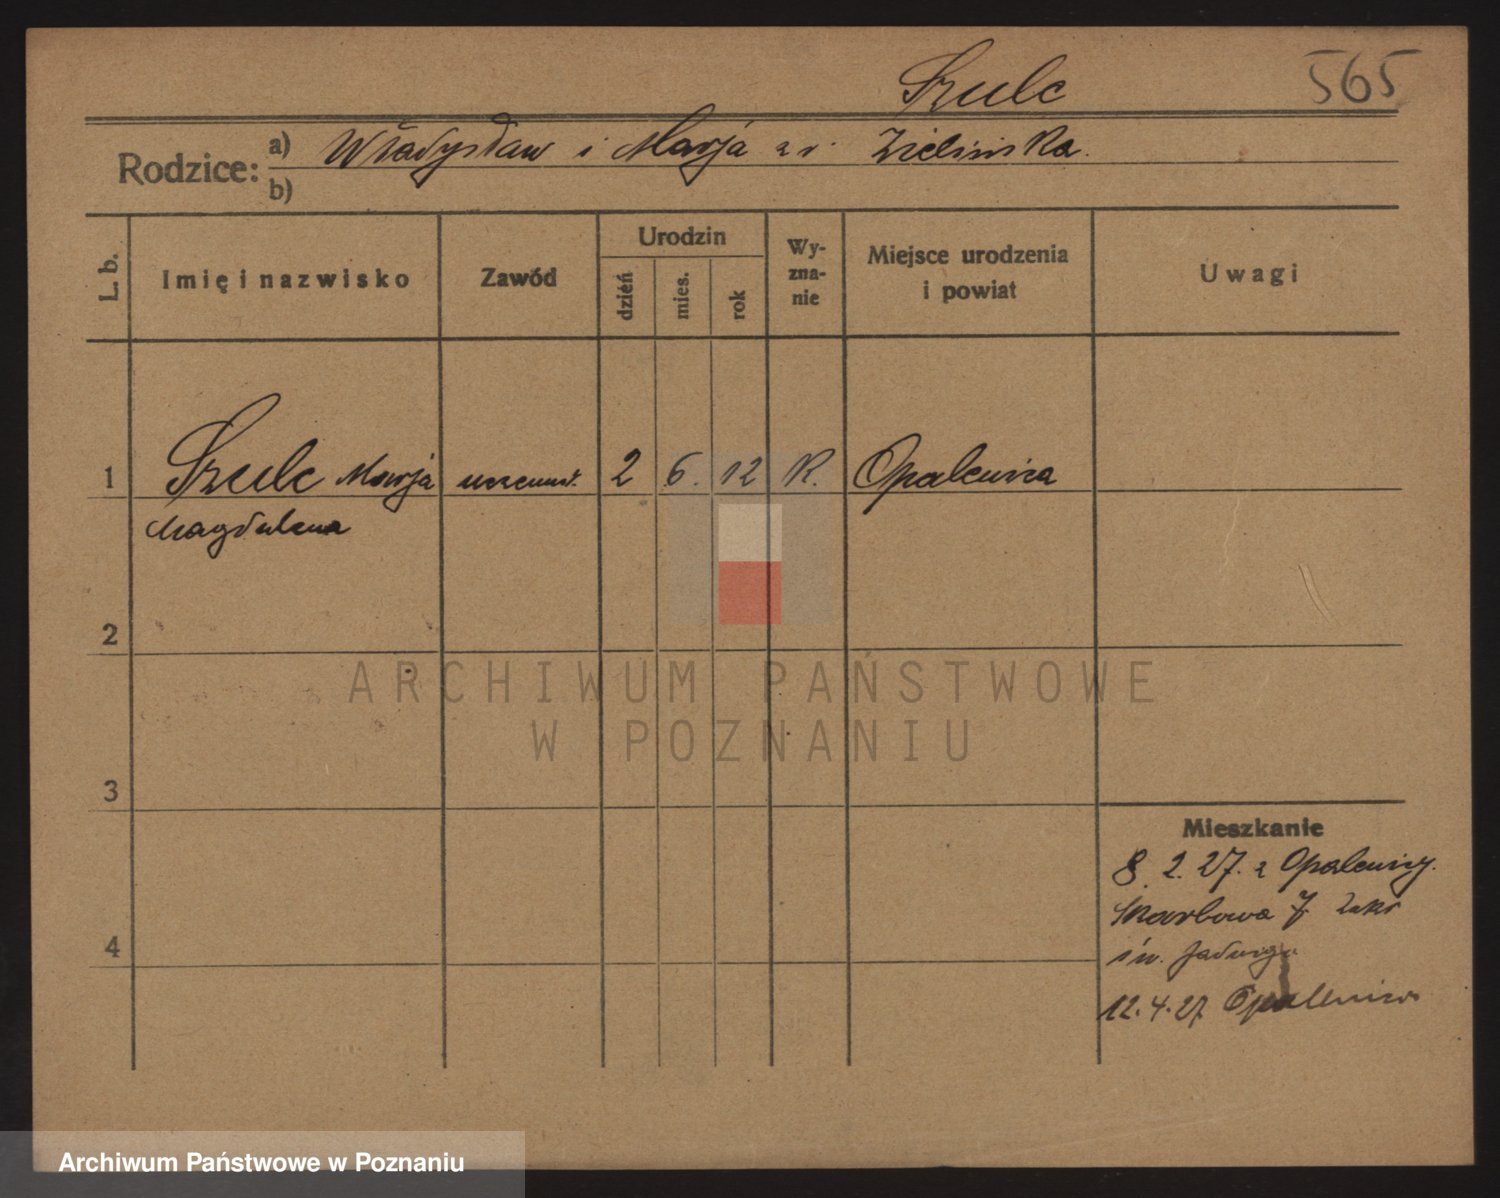 Szulc
565
Rodzice: a) Władysław i Marja z d. Zielińska.
b)
L. b.
Imię i nazwisko
Zawód
Urodzin
dzień
mies.
rok
Wy-
zna-
nie
Miejsce urodzenia
i powiat
Uwagi
1 Szulc Marja 2 6. 12 R. Opalenica
Magdalena
2
3
4
Mieszkanie
8. 2. 27. z Opalenicy.
Skarbowa 7 Zakł
św. Jadwigi
12.4.27 Opalenica
ARCHIWUM PAŃSTWOWE
W POZNANIU
Archiwum Państwowe w Poznaniu